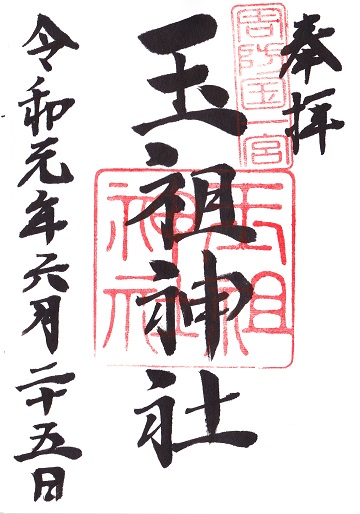 奉拝
周防国一宮
玉祖神社
玉祖
神社
令和元年六月二十五日